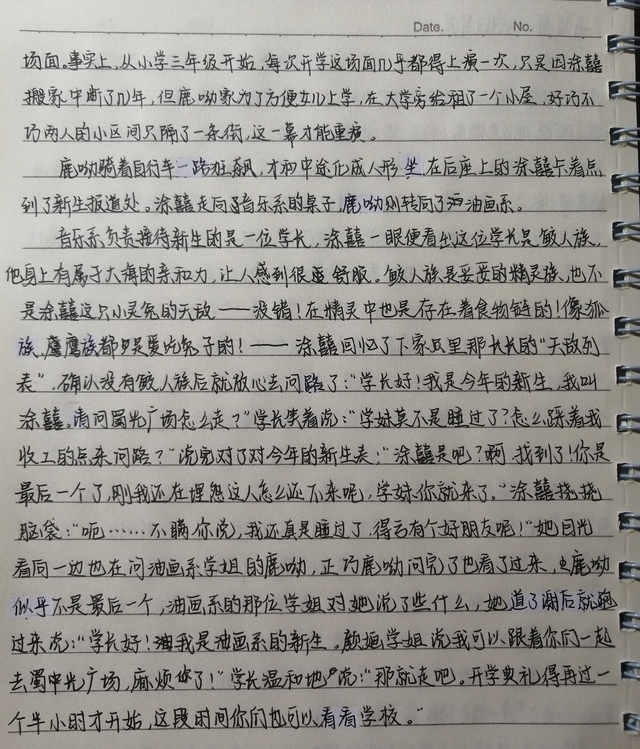 Date. No.
场面。事实上,从小学三年级开始,每次开学这场面几乎都得上演一次,只是因涂囍
搬家中断了几年,但鹿呦家为了方便女儿上学,在大学旁给租了一个小屋,好巧不
巧两人的小区间只隔了一条街,这一幕才能重演。
鹿呦骑着自行车一路狂飙,才和中途化成人形坐在后座上的涂囍卡着点
到了新生报道处。涂囍走向了音乐系的桌子,鹿呦则转向了油画系。
音乐系负责接待新生的是一位学长,涂囍一眼便看出这位学长是鲛人族,
他身上有属于大海的亲和力,让人感到很舒服。鲛人族是妥妥的精灵族,也不
是涂囍这只小灵兔的天敌——没错!在精灵中也是存在着食物链的!像狐
族、鹰族都是爱吃兔子的!——涂囍回忆了下家里那长长的“天敌列
表”,确认没有鲛人族后就放心去问路了:“学长好!我是今年的新生,我叫
涂囍。请问蜀光广场怎么走?”学长笑着说:“学妹莫不是睡过了?怎么踩着我
收工的点来问路?”说完对了对今年的新生表:“涂囍是吧?啊,找到了!你是
最后一个了,刚我还在埋怨这人怎么还不来呢,学妹你就来了。”涂囍挠挠
脑袋:“呃……不瞒你说,我还真是睡过了,得亏有个好朋友呢!”她目光
看向一边也在问油画系学姐的鹿呦,正巧鹿呦问完了也看了过来,鹿呦
似乎不是最后一个,油画系的那位学姐对她说了些什么,她道了谢后就跑
过来说:“学长好!我是油画系的新生。颜施学姐说我可以跟着你们一起
去蜀光广场,麻烦你了!”学长温和地说:“那就走吧。开学典礼得再过一
个半小时才开始,这段时间你们也可以看看学校。”